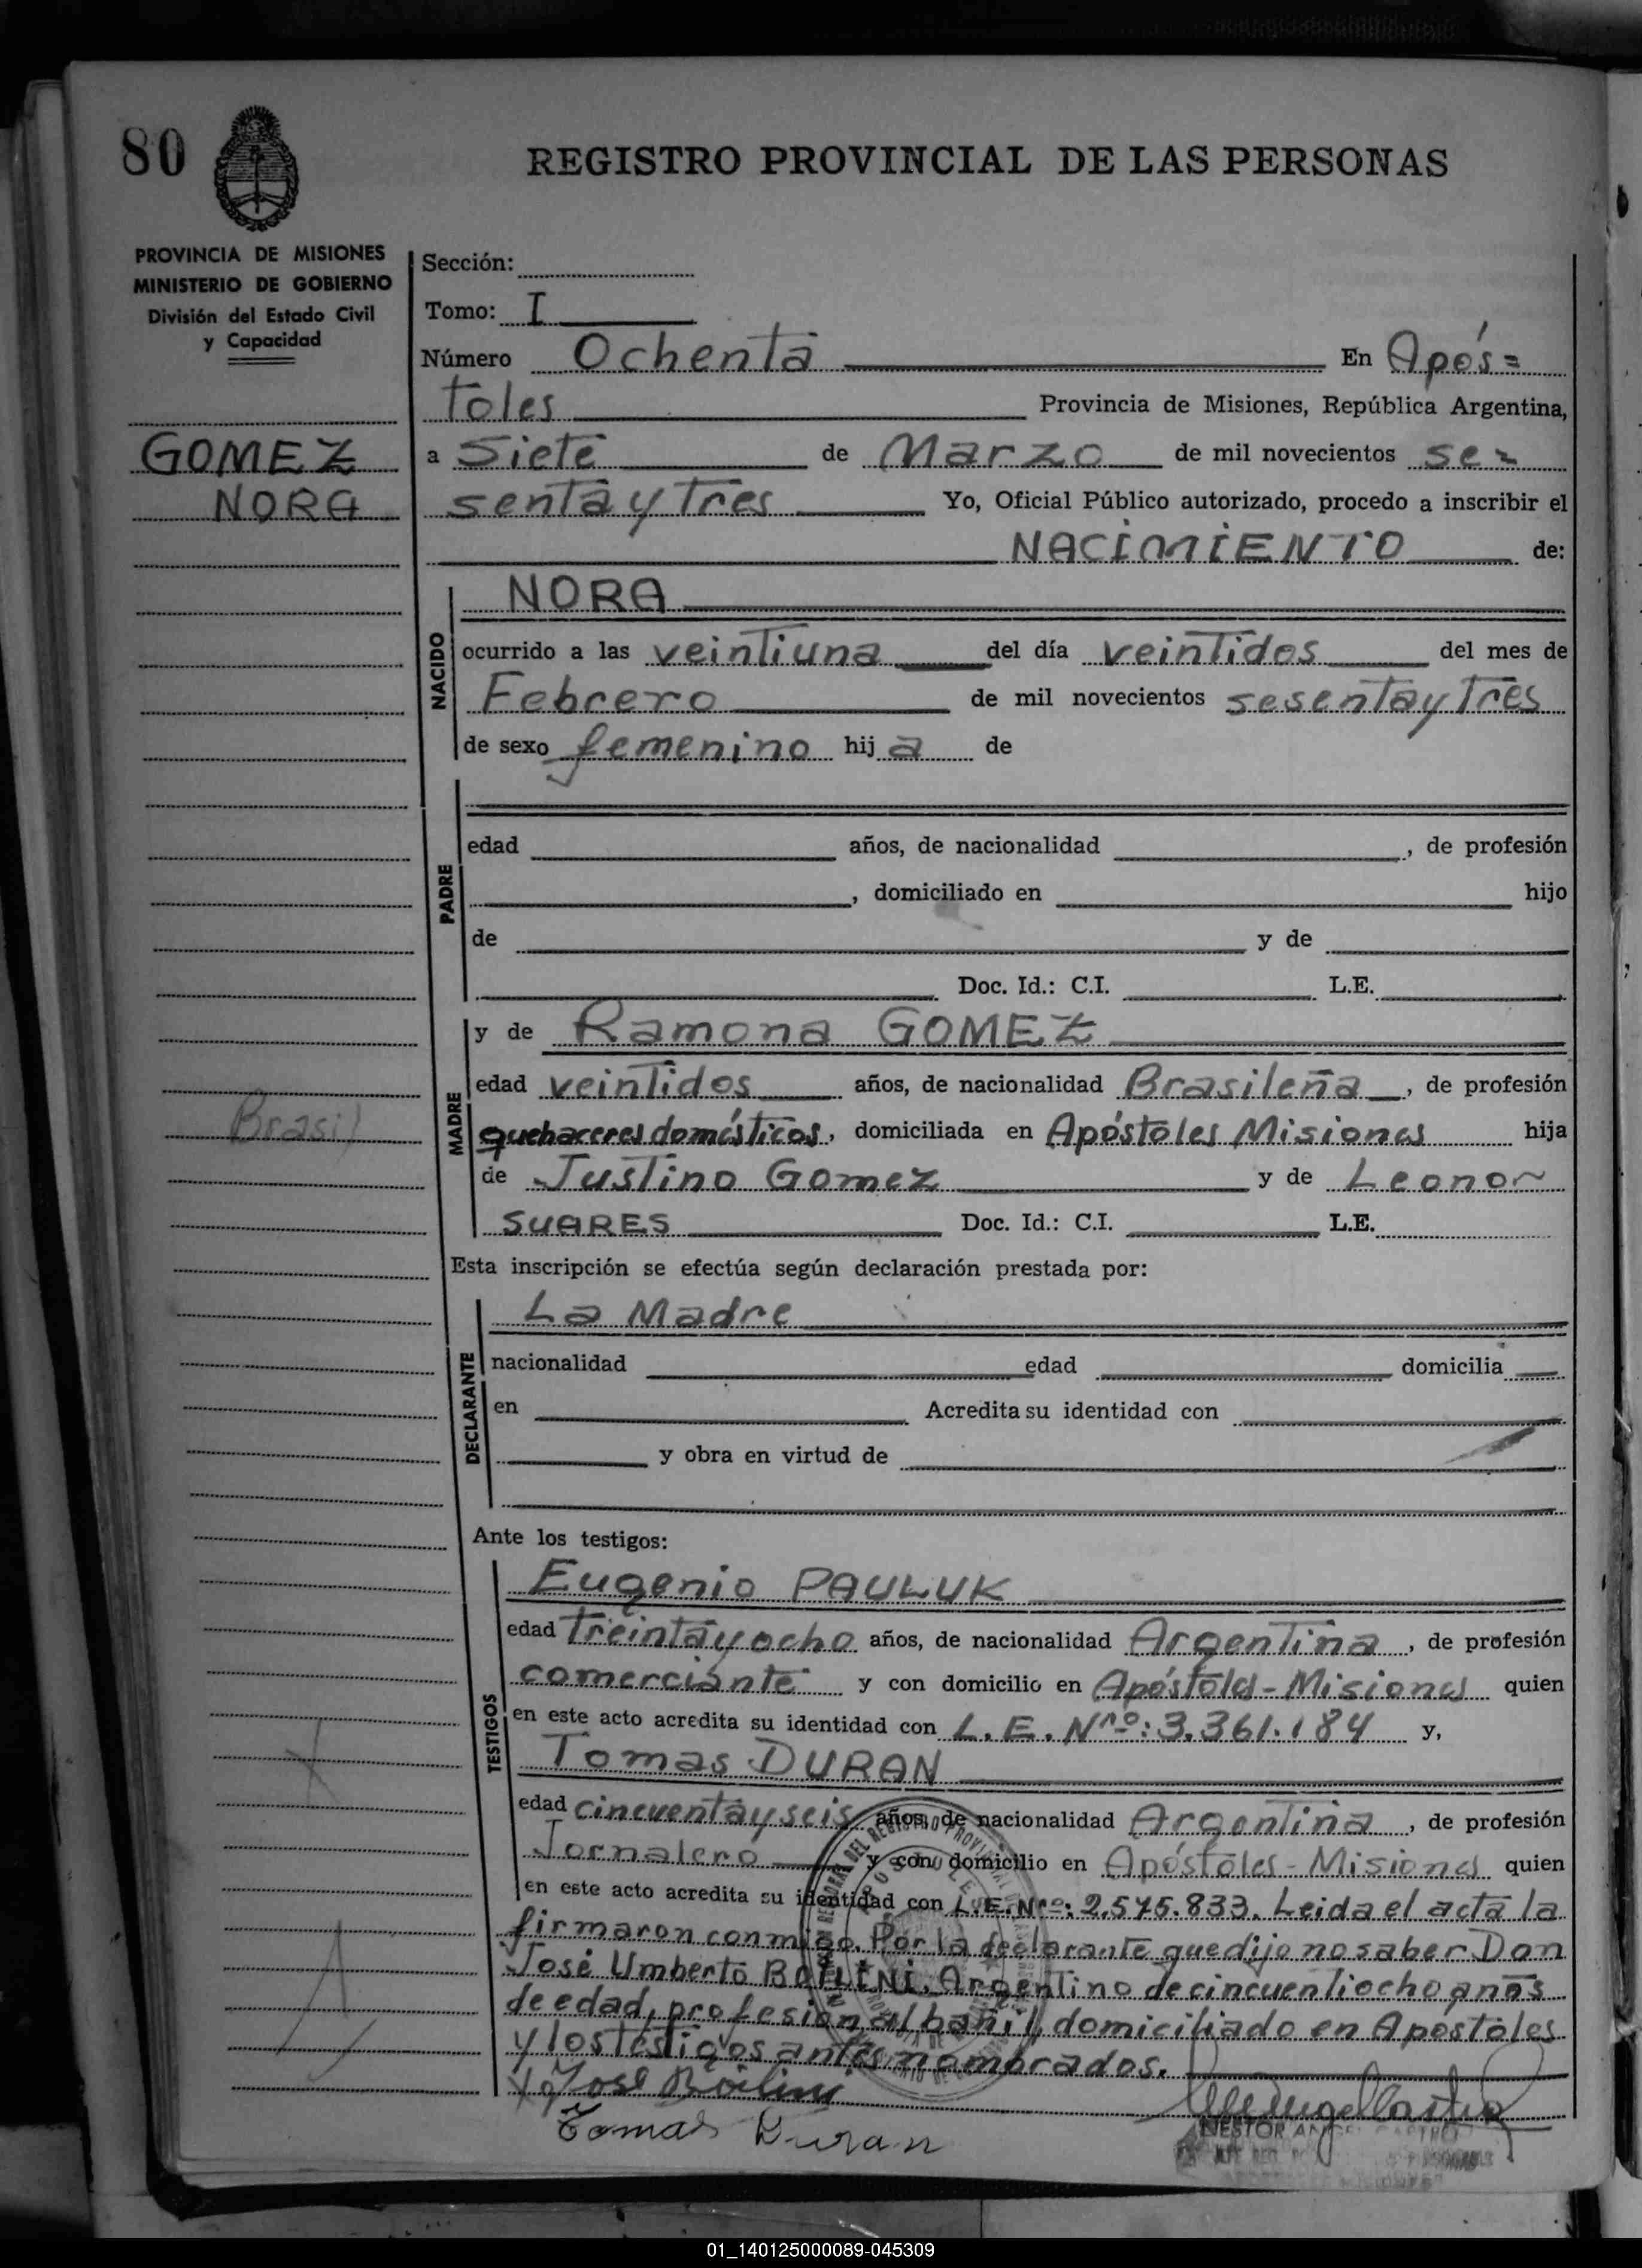 80
REGISTRO PROVINCIAL DE LAS PERSONAS
PROVINCIA DE MISIONES
MINISTERIO DE GOBIERNO
División del Estado Civil
y Capacidad
GOMEZ
NORA
Brasil
Sección:
Tomo: I
Número Ochenta En Após=
toles Provincia de Misiones, República Argentina,
a Siete de Marzo de mil novecientos se=
senta y Tres Yo, Oficial Público autorizado, procedo a inscribir el
NACIMIENTO de:
NACIDO
NORA
ocurrido a las veintiuna del día veintidos del mes de
Febrero de mil novecientos sesenta y Tres
de sexo femenino hij a de
PADRE
edad años, de nacionalidad , de profesión
, domiciliado en hijo
de y de
Doc. Id.: C.I. L.E.
MADRE
y de Ramona GOMEZ
edad veintidos años, de nacionalidad Brasileña, de profesión
quehaceres domésticos, domiciliada en Apóstoles Misiones hija
de Justino Gomez y de Leonor
SUARES Doc. Id.: C.I. L.E.
Esta inscripción se efectúa según declaración prestada por:
DECLARANTE
La Madre
nacionalidad edad domicilia
en Acredita su identidad con
y obra en virtud de
Ante los testigos:
TESTIGOS
Eugenio PAULUK
edad Treinta y ocho años, de nacionalidad Argentina, de profesión
comerciante y con domicilio en Apóstoles - Misiones quien
en este acto acredita su identidad con L.E. Nrº: 3.361.184 y,
Tomas DURAN
edad cincuenta y seis años, de nacionalidad Argentina, de profesión
Jornalero y con domicilio en Apóstoles - Misiones quien
en este acto acredita su identidad con L.E. Nrº: 2.575.833. Leida el acta la
firmaron conmigo. Por la declarante que dijo no saber Don
José Umberto BAILINI, Argentino de cincuentiocho años
de edad, profesion albañil, domiciliado en Apostoles
y los testigos antes nombrados.
José Bailini
Tomas Duran
NESTOR ANGEL CASTRO
01_140125000089-045309